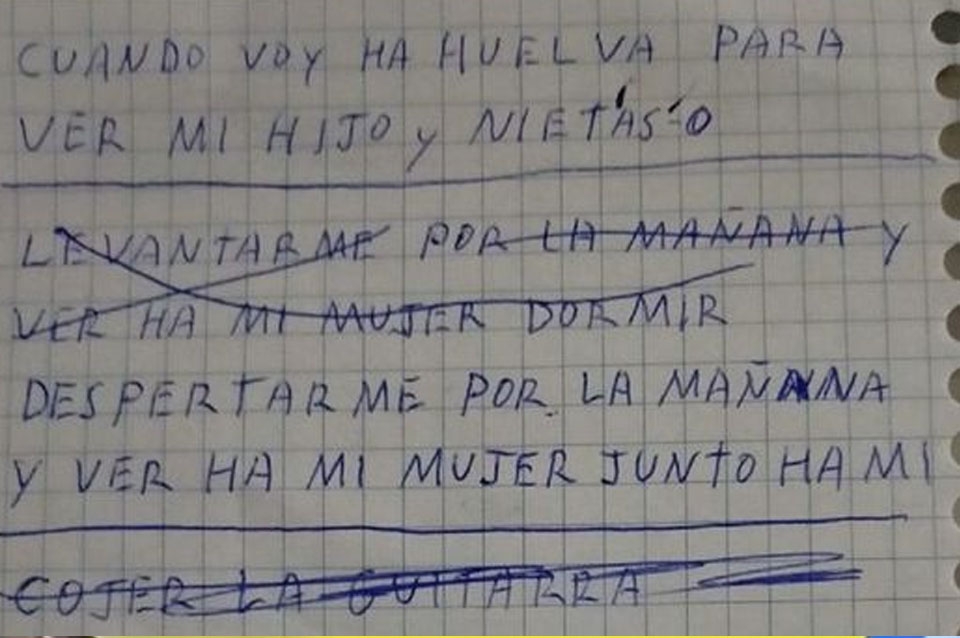 CUANDO VOY HA HUELVA PARA
VER MI HIJO y NIETAS-O
LEVANTARME POR LA MAÑANA Y
VER HA MI MUJER DORMIR
DESPERTARME POR LA MAÑANA
Y VER HA MI MUJER JUNTO HA MI
COJER LA GUITARRA